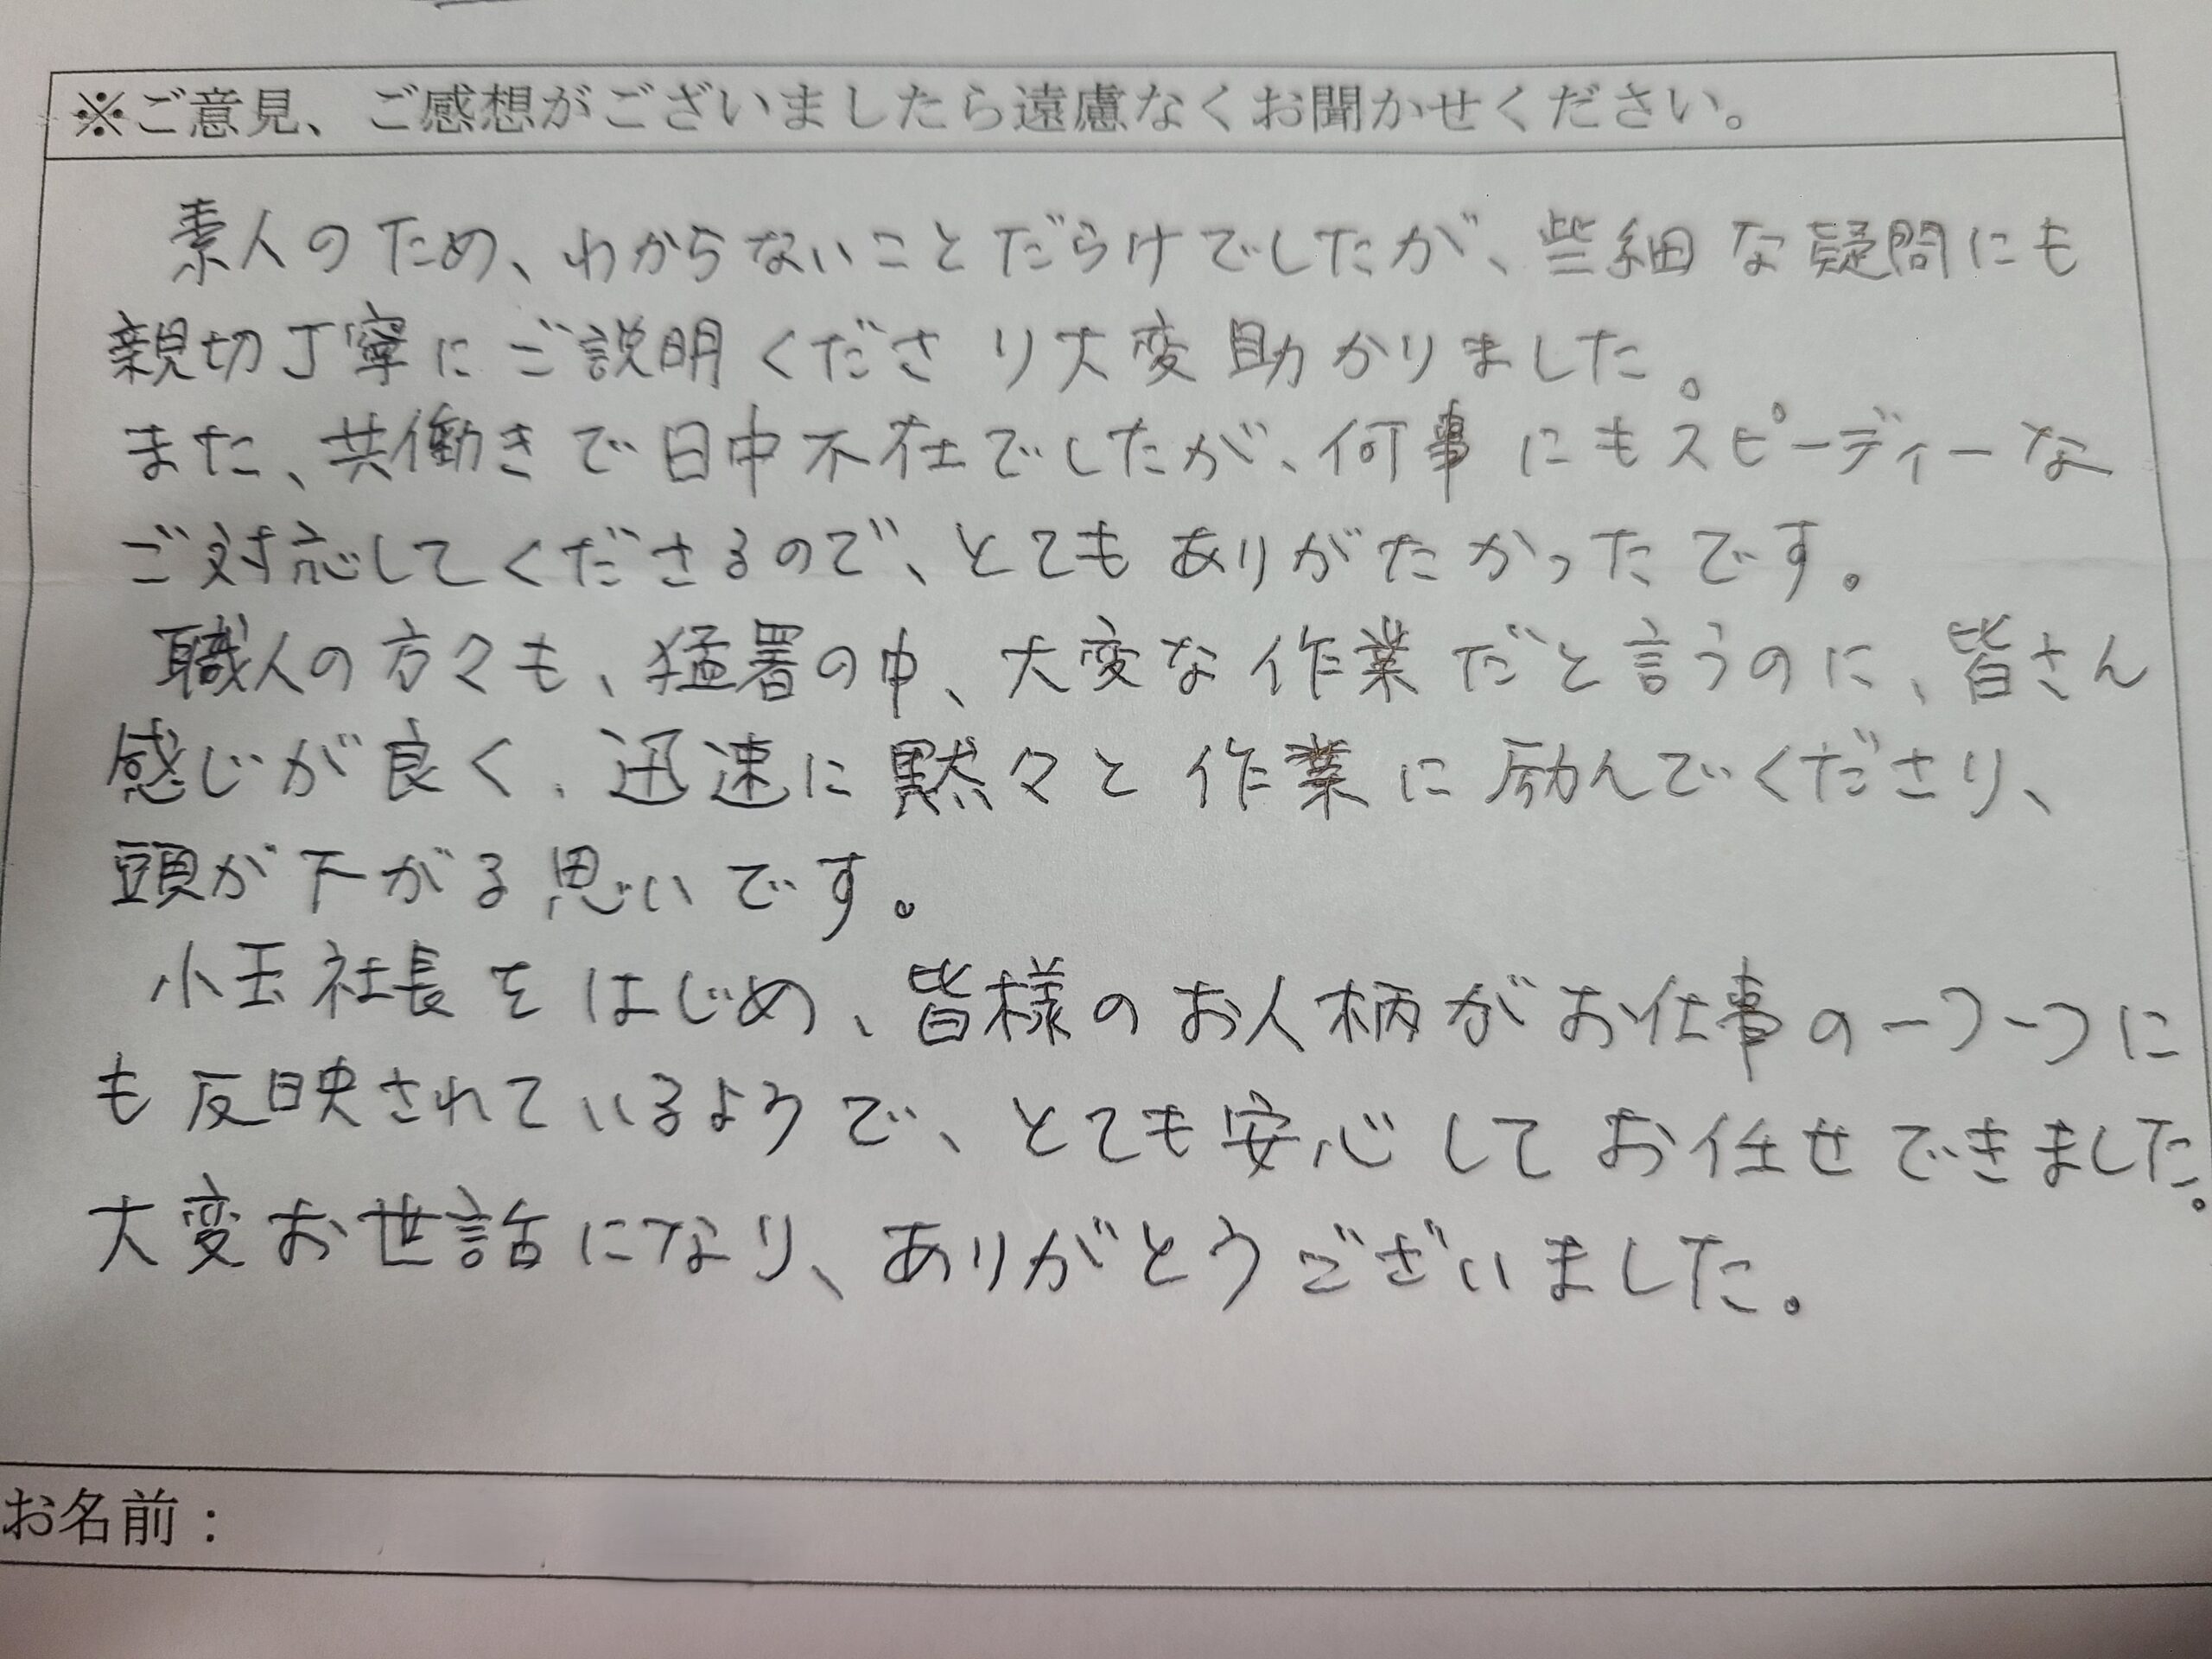 ※ご意見、ご感想がございましたら遠慮なくお聞かせください。
素人のため、わからないことだらけでしたが、些細な疑問にも
親切丁寧にご説明くださり大変助かりました。
また、共働きで日中不在でしたが、何事にもスピーディーな
ご対応してくださるので、とてもありがたかったです。
職人の方々も、猛署の中、大変な作業だと言うのに、皆さん
感じが良く、迅速に黙々と作業に励んでくださり、
頭が下がる思いです。
小玉社長をはじめ、皆様のお人柄がお仕事の一つ一つに
も反映されているようで、とても安心してお任せできました。
大変お世話になり、ありがとうございました。
お名前：